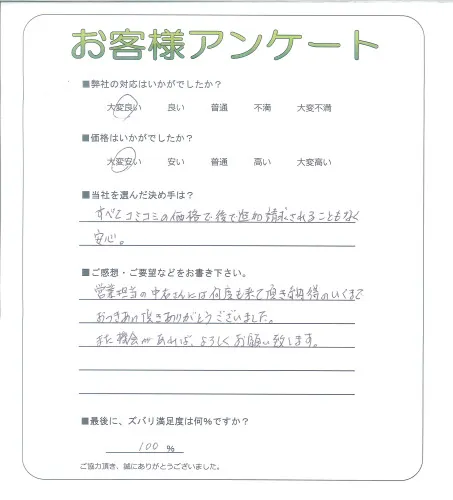 お客様アンケート
■弊社の対応はいかがでしたか？
大変良い 良い 普通 不満 大変不満
■価格はいかがでしたか？
大変安い 安い 普通 高い 大変高い
■当社を選んだ決め手は？
すべてコミコミの価格で後で追加請求されることもなく
安心。
■ご感想・ご要望などをお書き下さい。
営業担当の中右さんには何度も来て頂き納得のいくまで
おつきあい頂きありがとうございました。
また機会があれば、よろしくお願い致します。
■最後に、ズバリ満足度は何%ですか？
100 %
ご協力頂き、誠にありがとうございました。